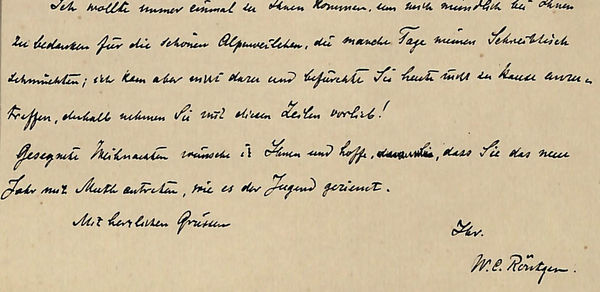 Ich wollte immer einmal zu Ihnen kommen, um mich mündlich bei Ihnen
zu bedanken für die schönen Alpenveilchen, die manche Tage meinen Schreibtisch
schmückten; ich kam aber nicht dazu und befürchte Sie heute nicht zu Hause anzu =
treffen, deshalb nehmen Sie mit diesen Zeilen vorlieb!
Gesegnete Weihnachten wünsche ich Ihnen und hoffe, dass Sie das neue
Jahr mit Muth antreten, wie es der Jugend geziemt.
Mit herzlichen Grüssen
Ihr.
W. C. Röntgen.